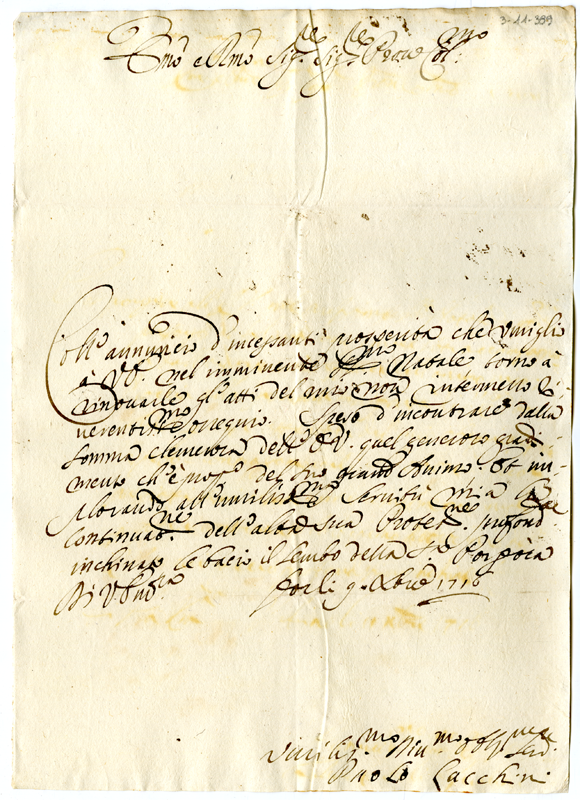 3-11-389
Emo e Rmo Sig.re Sig.re Prone Col.mo
Coll'annuncio d'incessanti prosperità che umiglio
à V.E. nel imminente SSmo Natale torno à
rinovarle gl'atti del mio non intermesso ri-
verentissmo ossequio. Spero d'incontrare dalla
somma clemenza dell'E.V. quel generoso gradi-
mento ch'è del suo grand'Animo. Et im-
plorando all'umilissma servitù mia la
continuaz.ne dell'alta sua Protez.ne
inchinato le bacio il lembo della S. Porpora
Di V. Em.za Forlì 9. Xbre 1716
Umiliss.mo Div.mo Obb. Ser.
Paolo Lacchini